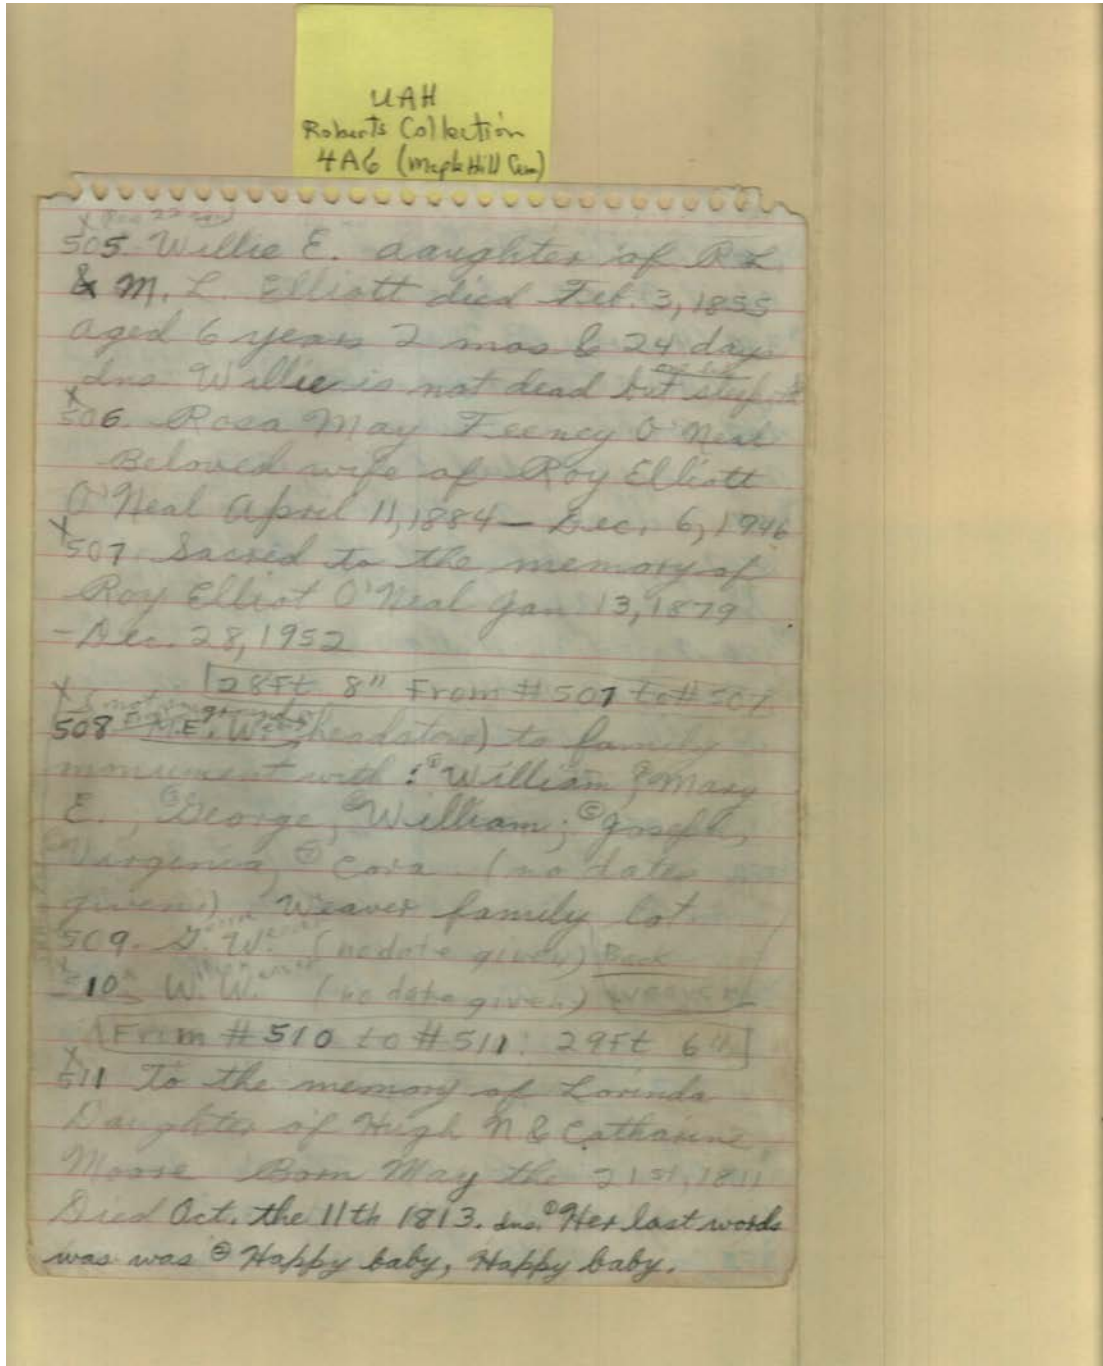 UAH
Roberts Collection
4A6 (Maple Hill Cem)
505. Willie E. daughter of R L
& M. L. Elliott died Feb. 3, 1855
aged 6 years 2 mos & 24 days
dns. Willie is not dead but
506. Rosa May Feeney O'Neal
Beloved wife of Roy Elliott
O'Neal April 11, 1884 — Dec. 6, 1946
507. Sacred to the memory of
Roy Elliot O'Neal Jan 13, 1879
- Dec. 28, 1952
28Ft 8" From #507 to #507
508 M.E. W. (headstone) to family
monument with: ① William ② Mary
E., ③ George, ④ William; ⑤ Joseph,
Virginia, ⑦ Cora (no dates
given). Weaver family lot
509. G. W. (no date given) Back
510 W. W. (no date given) Weaver
From #510 to #511: 29Ft 6"
511 To the memory of Lorinda
Daughter of Hugh N & Catharine
Moore Born May the 21st, 1811
Died Oct. the 11th 1813. dns. ① Her last words
was was ② Happy baby, Happy baby.